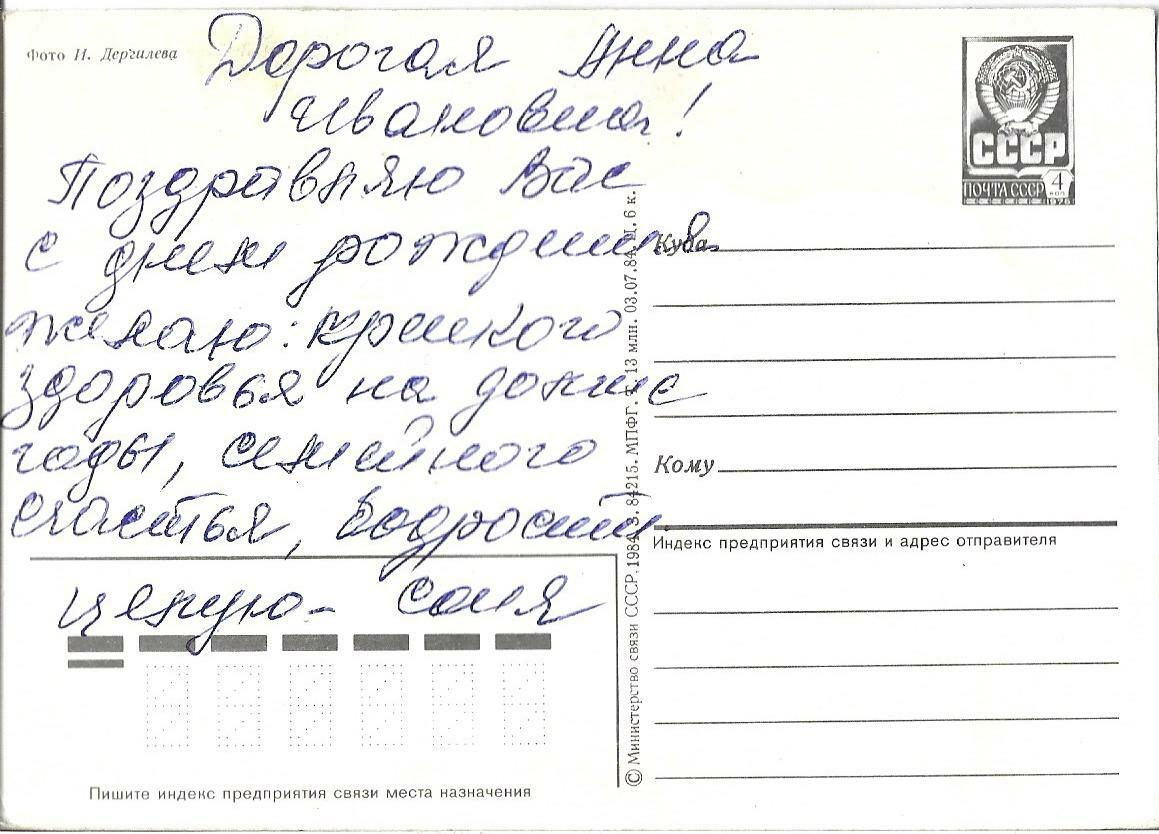 Фото И. Дергилева
Дорогая Анна
Ивановна!
Поздравляю Вас
с днем рождения
желаю: крепкого
здоровья на долгие
годы, семейного
счастья, бодрости
целую - Соня
СССР
ПОЧТА СССР 4 коп
1976
Куда
Кому
Индекс предприятия связи и адрес отправителя
Пишите индекс предприятия связи места назначения
© Министерство связи СССР. 1984. З. 84215. МПФГ. 13 млн. 03.07.84. Ц. 6 к.